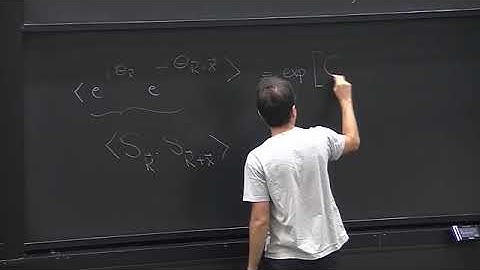 ⟨ e^{iθ_R⃗} e^{-θ_{R⃗+x⃗}} ⟩ = exp [ G
⟨ S_R⃗ · S_{R⃗+x⃗} ⟩